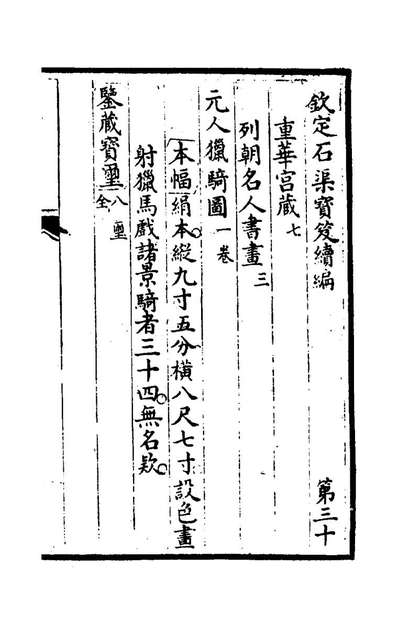 欽定石渠寶笈續編 第三十
重華宮藏七
列朝名人書畫三
元人獵騎圖一卷
本幅絹本縱九寸五分橫八尺七寸設色畫
射獵馬戲諸景騎者三十四無名款
鑒藏寶璽八璽全